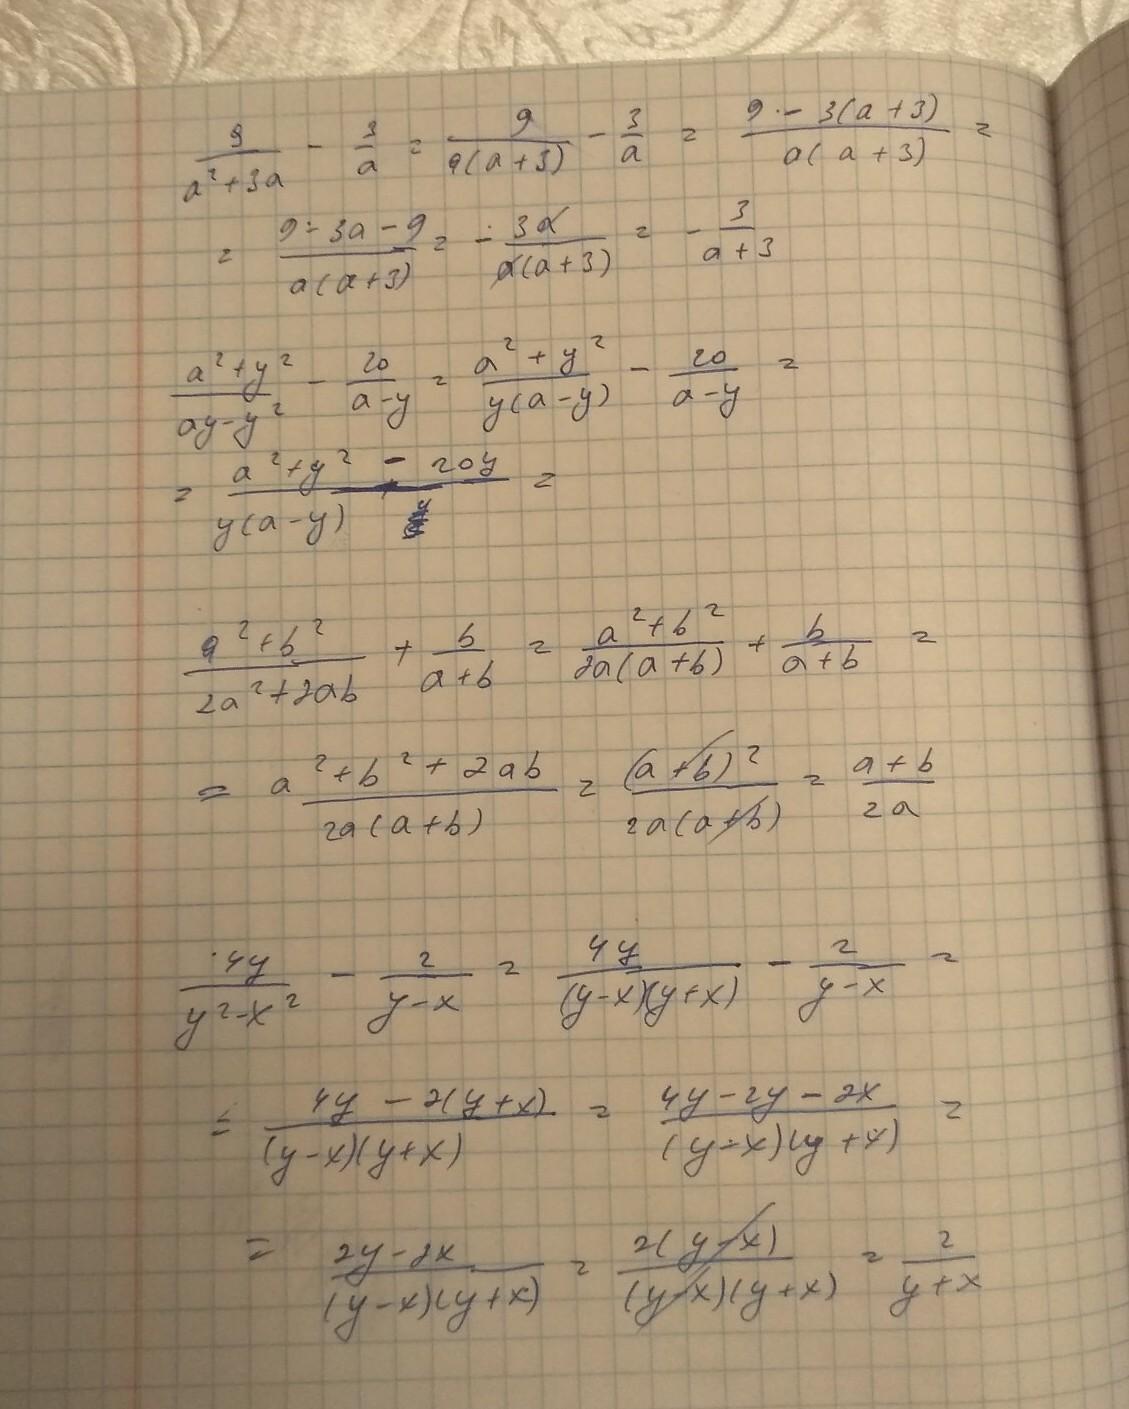 9/(a²+3a) - 3/a = 9/(a(a+3)) - 3/a = (9 - 3(a+3))/(a(a+3)) =
= (9-3a-9)/(a(a+3)) = -3a/(a(a+3)) = -3/(a+3)
(a²+y²)/(ay-y²) - 20/(a-y) = (a²+y²)/(y(a-y)) - 20/(a-y) =
= (a²+y² - 20y)/(y(a-y)) =
(a²+b²)/(2a²+2ab) + b/(a+b) = (a²+b²)/(2a(a+b)) + b/(a+b) =
= (a²+b²+2ab)/(2a(a+b)) = (a+b)²/(2a(a+b)) = (a+b)/(2a)
4y/(y²-x²) - 2/(y-x) = 4y/((y-x)(y+x)) - 2/(y-x) =
= (4y-2(y+x))/((y-x)(y+x)) = (4y-2y-2x)/((y-x)(y+x)) =
= (2y-2x)/((y-x)(y+x)) = 2(y-x)/((y-x)(y+x)) = 2/(y+x)